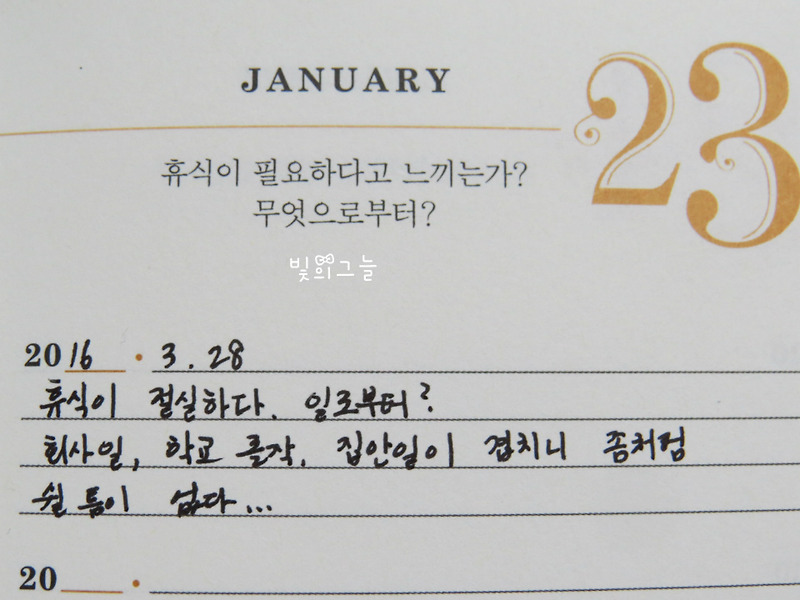 JANUARY 23
휴식이 필요하다고 느끼는가?
무엇으로부터?
빛의그늘
2016 · 3. 28
휴식이 절실하다. 일로부터?
회사일, 학교 과작, 집안일이 겹치니 좀처럼
쉴 틈이 없다...
20 ·